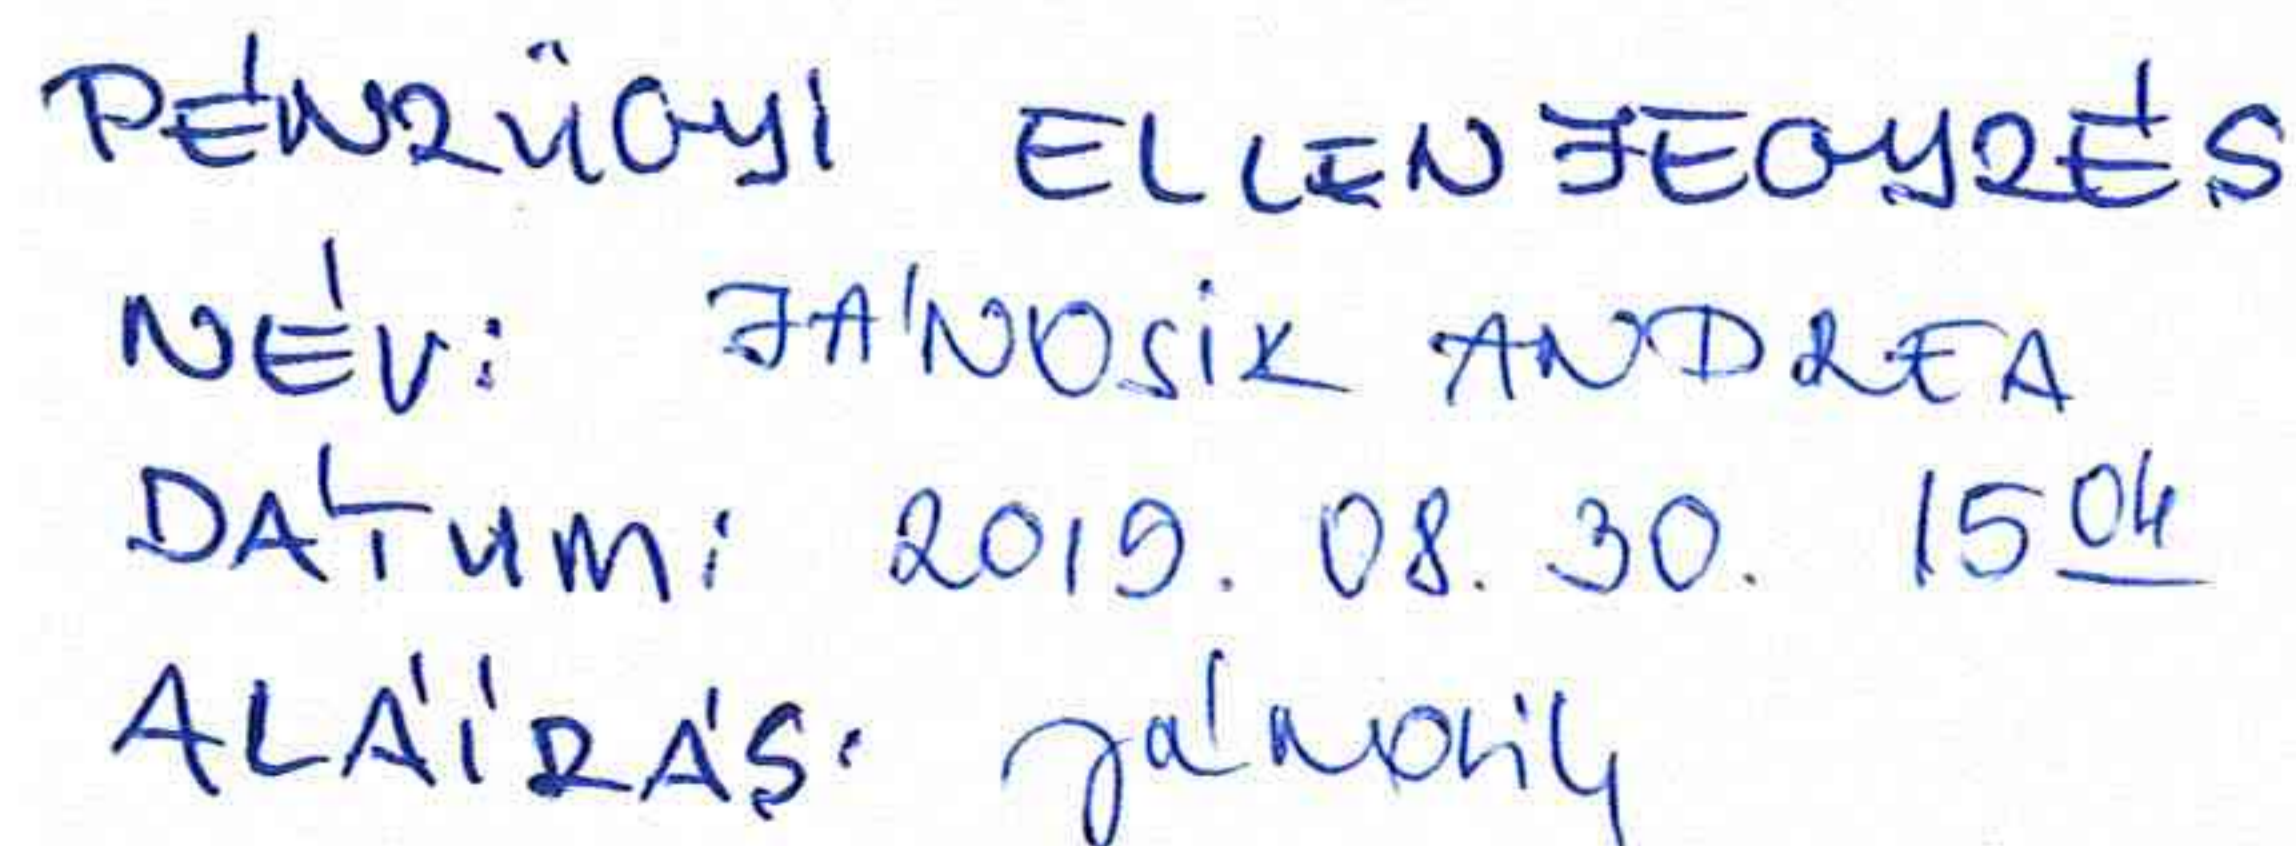 PÉNZÜGYI ELLENJEGYZÉS
NÉV: JÁNOSIK ANDREA
DÁTUM: 2019. 08. 30. 15 04
ALÁÍRÁS: Jánosik